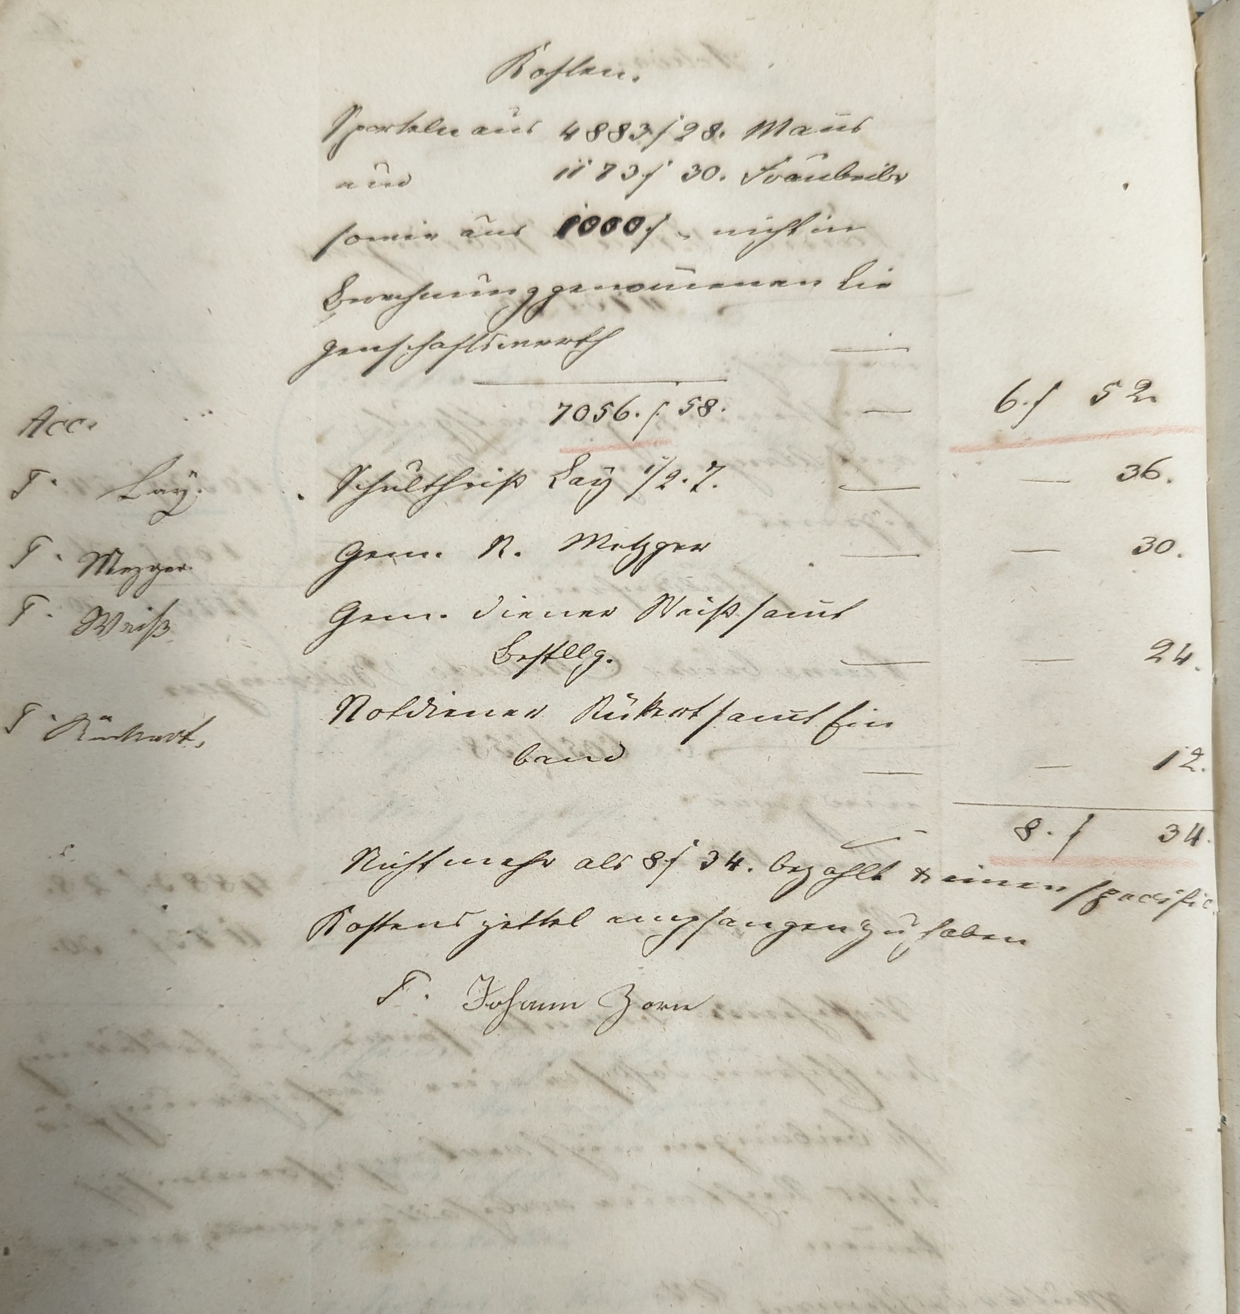 Kosten.
Sporteln aus 4883 f 28. Mañs
und 1173 f 30. Fraubeibr
sowie aus 1000 f - nicht in
Berechnung genom̄enen Lie
genschaftswerth —
7056. f 58. — 6. f 52
Acc.
T. Lay. Schultheiß Lay 1/2. T. — — 36.
T. Mezger Gem. R. Metzger — — 30.
T. Weiß Gem. diener Weiß sam̄t
Bestllg. — — 24.
T. Rückert, Notdiener Rückert sam̄t Ein
band — — 12.
8. f 34.
Nicht mehr als 8 f 34. bezahlt & einen specific.
Kostenszettel empfangen zu haben
T. Johann Zorn